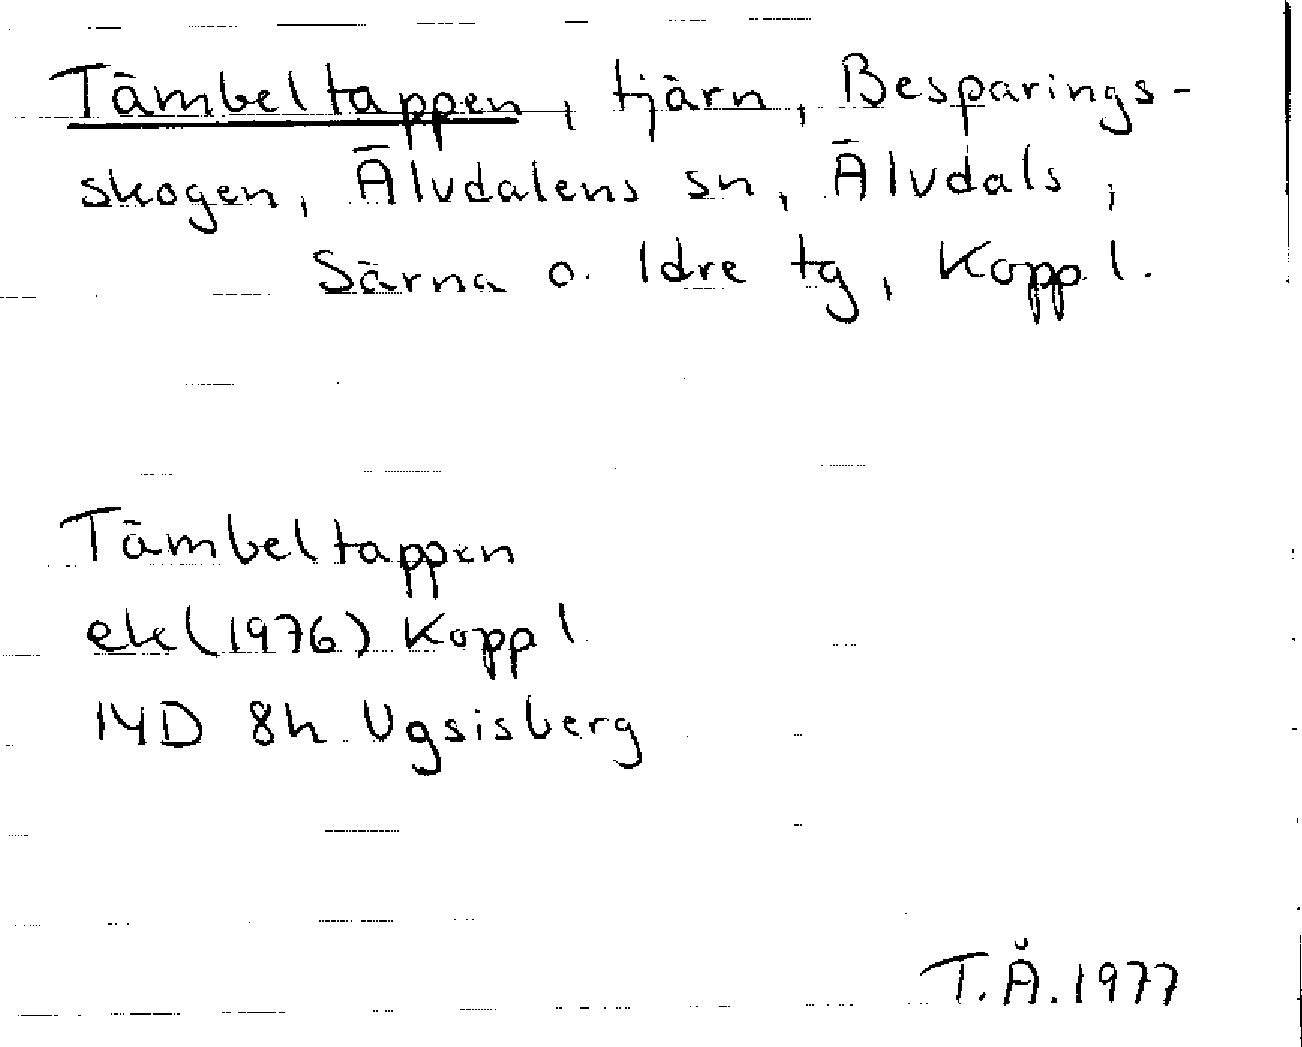 Tämbeltappen, tjärn, Besparings-
skogen, Älvdalens sn, Älvdals,
Särna o. Idre tg, Kopp l.
Tämbeltappen
ek (1976) Kopp l
14D 8h Ugsisberg
T.Å.1977